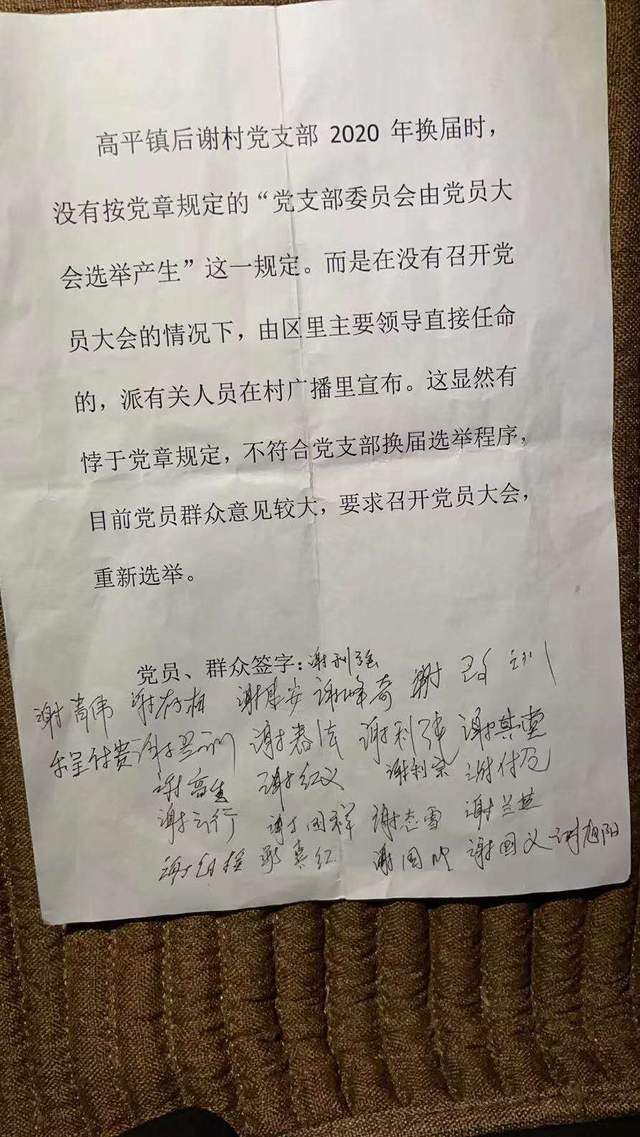 高平镇后谢村党支部 2020 年换届时，
没有按党章规定的“党支部委员会由党员大
会选举产生”这一规定。而是在没有召开党
员大会的情况下，由区里主要领导直接任命
的，派有关人员在村广播里宣布。这显然有
悖于党章规定，不符合党支部换届选举程序，
目前党员群众意见较大，要求召开党员大会，
重新选举。
党员、群众签字：谢利强
谢高伟 谢 谢 安 谢峰奇 谢 训
谢 训 谢春法 谢利 谢其
谢 谢红义 谢利宗 谢付
谢云行 谢国祥 谢志雪 谢兰英
谢 红 谢国 谢国义 谢旭阳